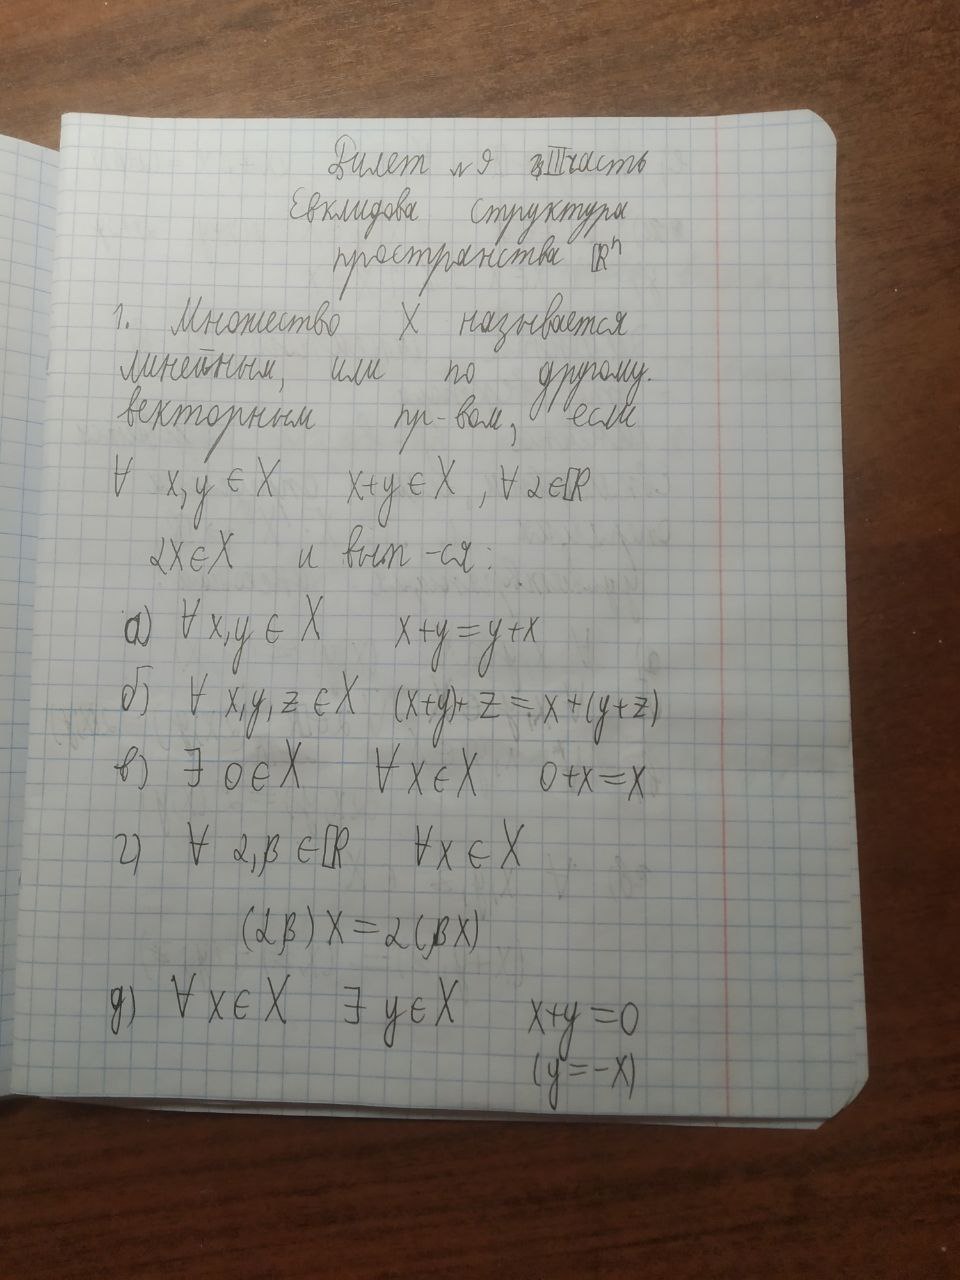 Билет №9 III часть
Евклидова структура
пространства ℝⁿ
1. Множество X называется
линейным, или по другому.
векторным пр-вом, если
∀ x, y ∈ X x+y ∈ X, ∀ α ∈ ℝ
αx ∈ X и вып-ся:
а) ∀ x, y ∈ X x+y = y+x
б) ∀ x, y, z ∈ X (x+y)+z = x+(y+z)
в) ∃ 0 ∈ X ∀ x ∈ X 0+x = x
г) ∀ α, β ∈ ℝ ∀ x ∈ X
(αβ)x = α(βx)
д) ∀ x ∈ X ∃ y ∈ X x+y = 0
(y = -x)